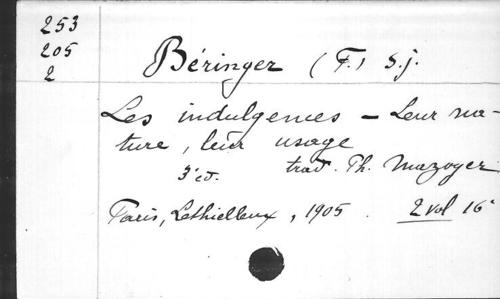 253
205
2
Béringer (F.) S.j.
Les indulgences - Leur na-
ture, leur usage
3e éd. trad. Th. Mazoyer
Paris, Lethielleux, 1905. 2 vol 16°